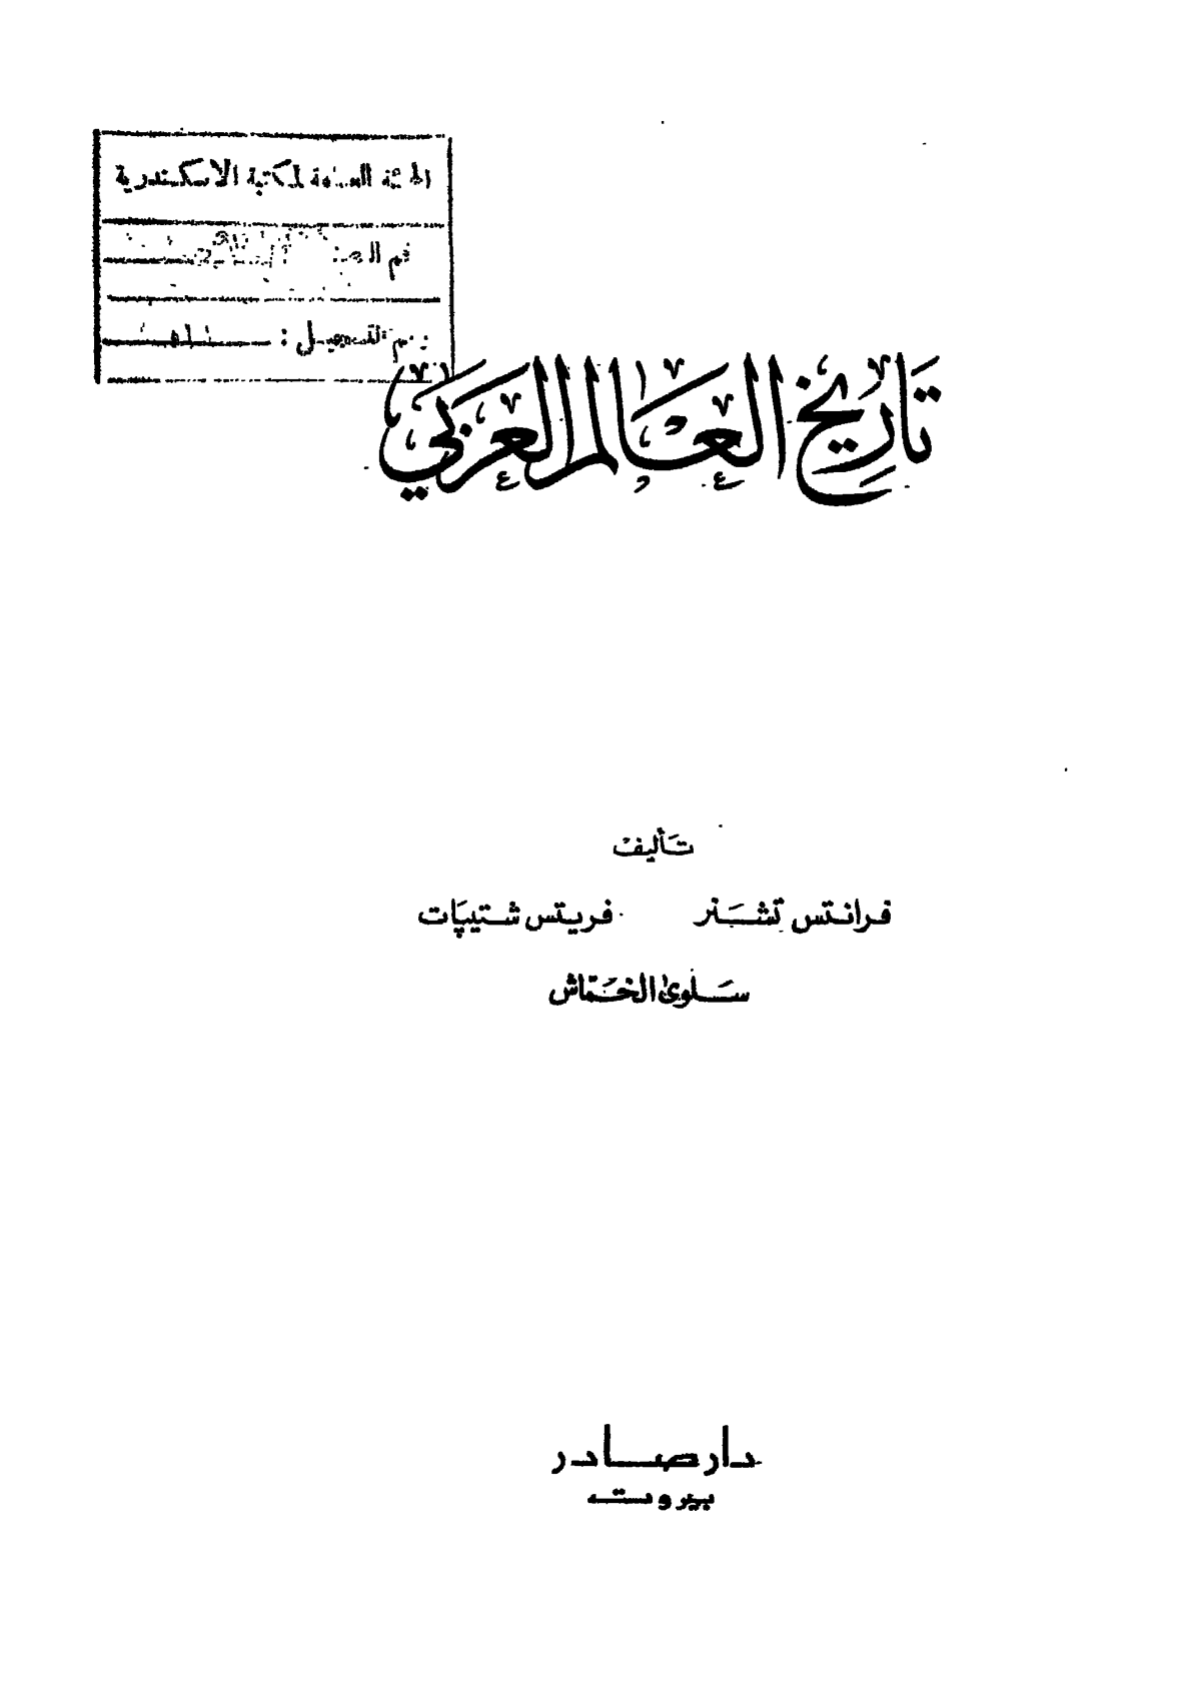 الهيئة العامة لمكتبة الاسكندرية
رقم
رقم التسجيل :
تاريخ العالم العربي
تأليف
فرانتس تشنر فريتس شتيپات
سلوى الخمّاش
دار صادر
بيروت